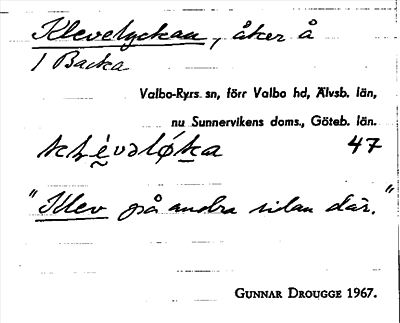 Klevelyckan, åker å
1 Backa
Valbo-Ryrs sn, förr Valbo hd, Älvsb. län,
nu Sunnervikens doms., Göteb. län.
kḷèvəløka 47
"Klev på andra sidan där."
GUNNAR DROUGGE 1967.